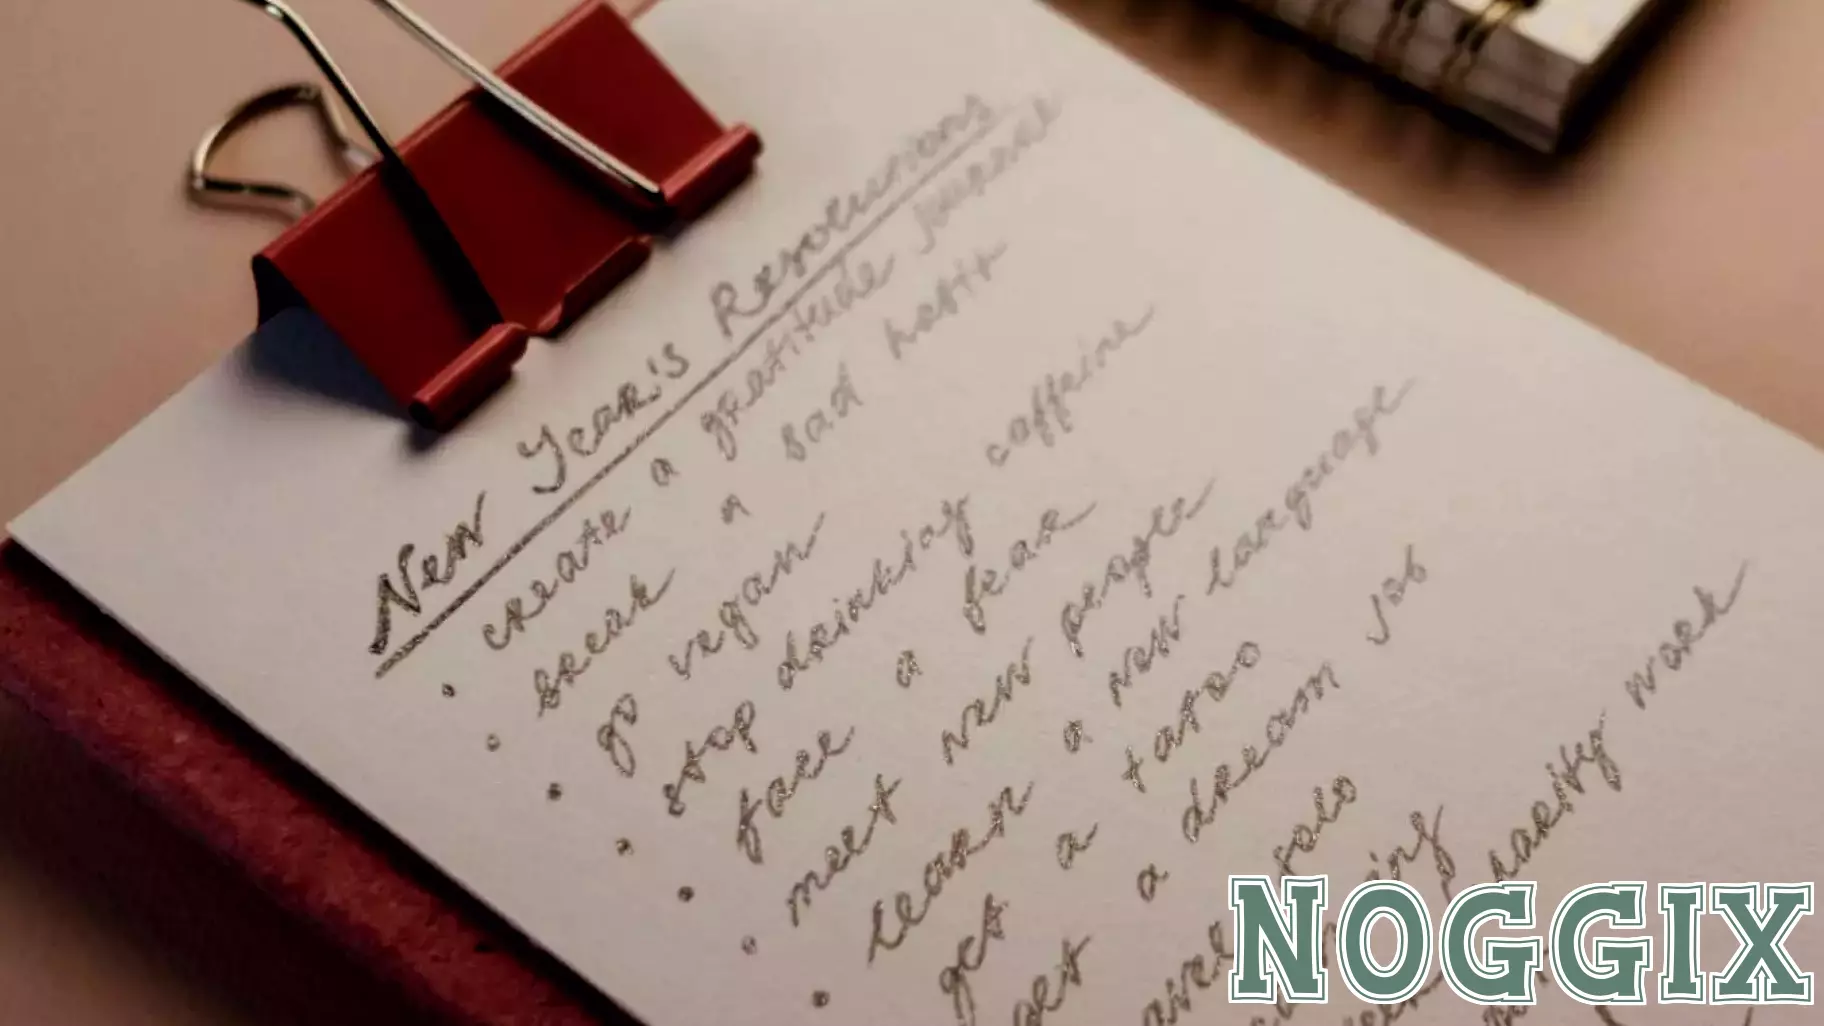 New Year's Resolutions
• create a gratitude journal
• break a bad habit
• go vegan
• stop drinking caffeine
• face a fear
• meet new people
• learn a new language
get a tattoo
get a dream job
solo
work
NOGGIX